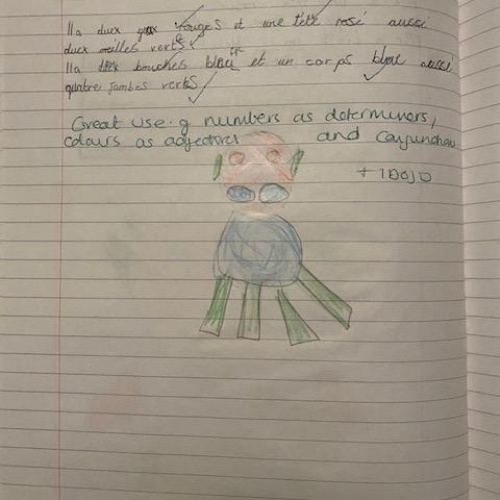 Ila deux yeux rouges et une tête rosé aussi
deux orielles vertes
Ila deux bouches bleu et un corps bleu aussi
quatre jambes vertes
Great use of numbers as determiners,
colours as adjectives and conjunctions
+ 1DOJO